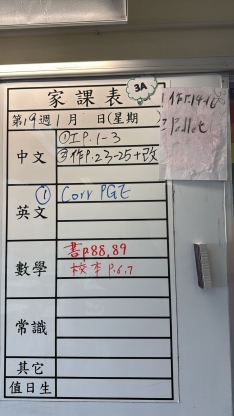 3A
家課表
第19週1月 日(星期 )
中文
①工P.1-3
②作P.23-25+改
英文
① Corr PGE
數學
書P.88,89
校本P.6,7
常識
其它
值日生
Pallet